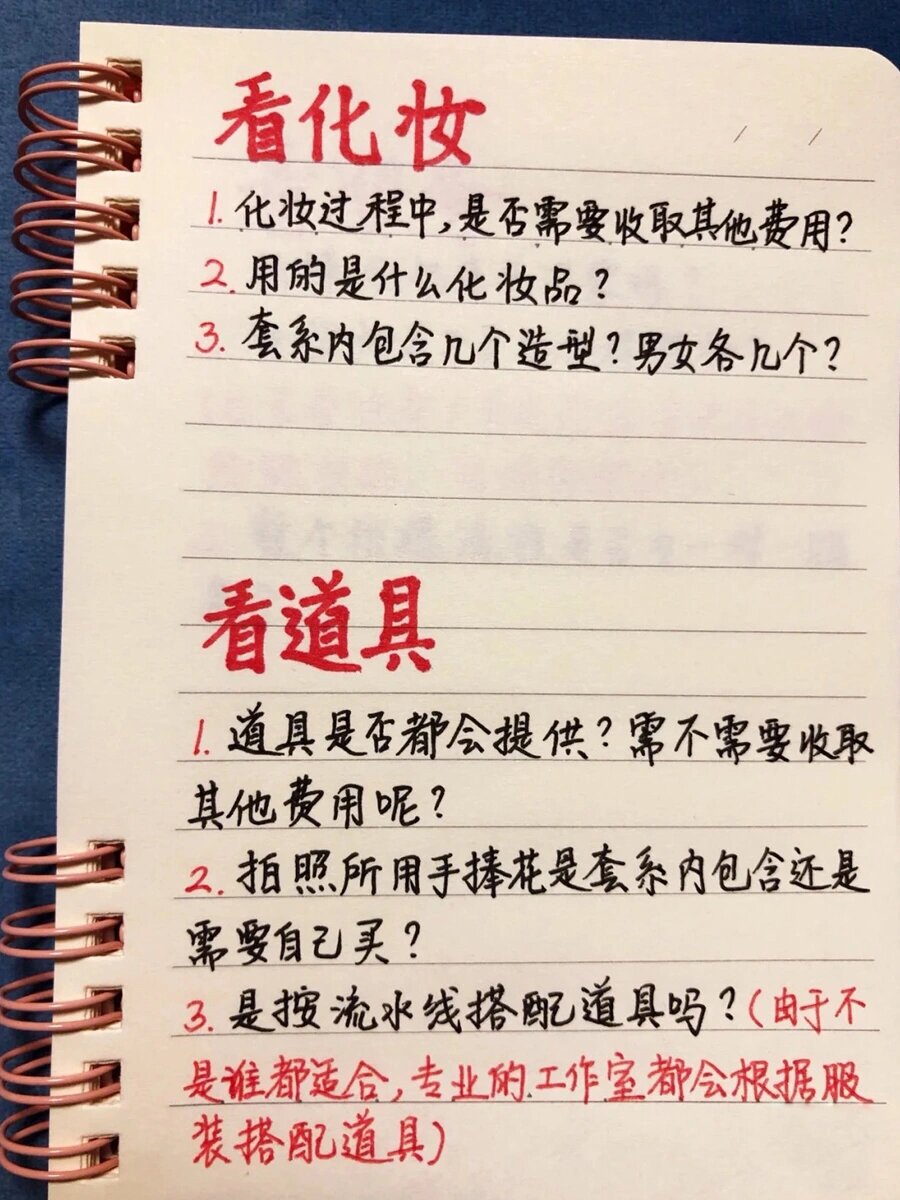 看化妆
1. 化妆过程中,是否需要收取其他费用?
2. 用的是什么化妆品?
3. 套系内包含几个造型?男女各几个?
看道具
1. 道具是否都会提供?需不需要收取
其他费用呢?
2. 拍照所用手捧花是套系内包含还是
需要自己买?
3. 是按流水线搭配道具吗?(由于不
是谁都适合,专业的工作室都会根据服
装搭配道具)